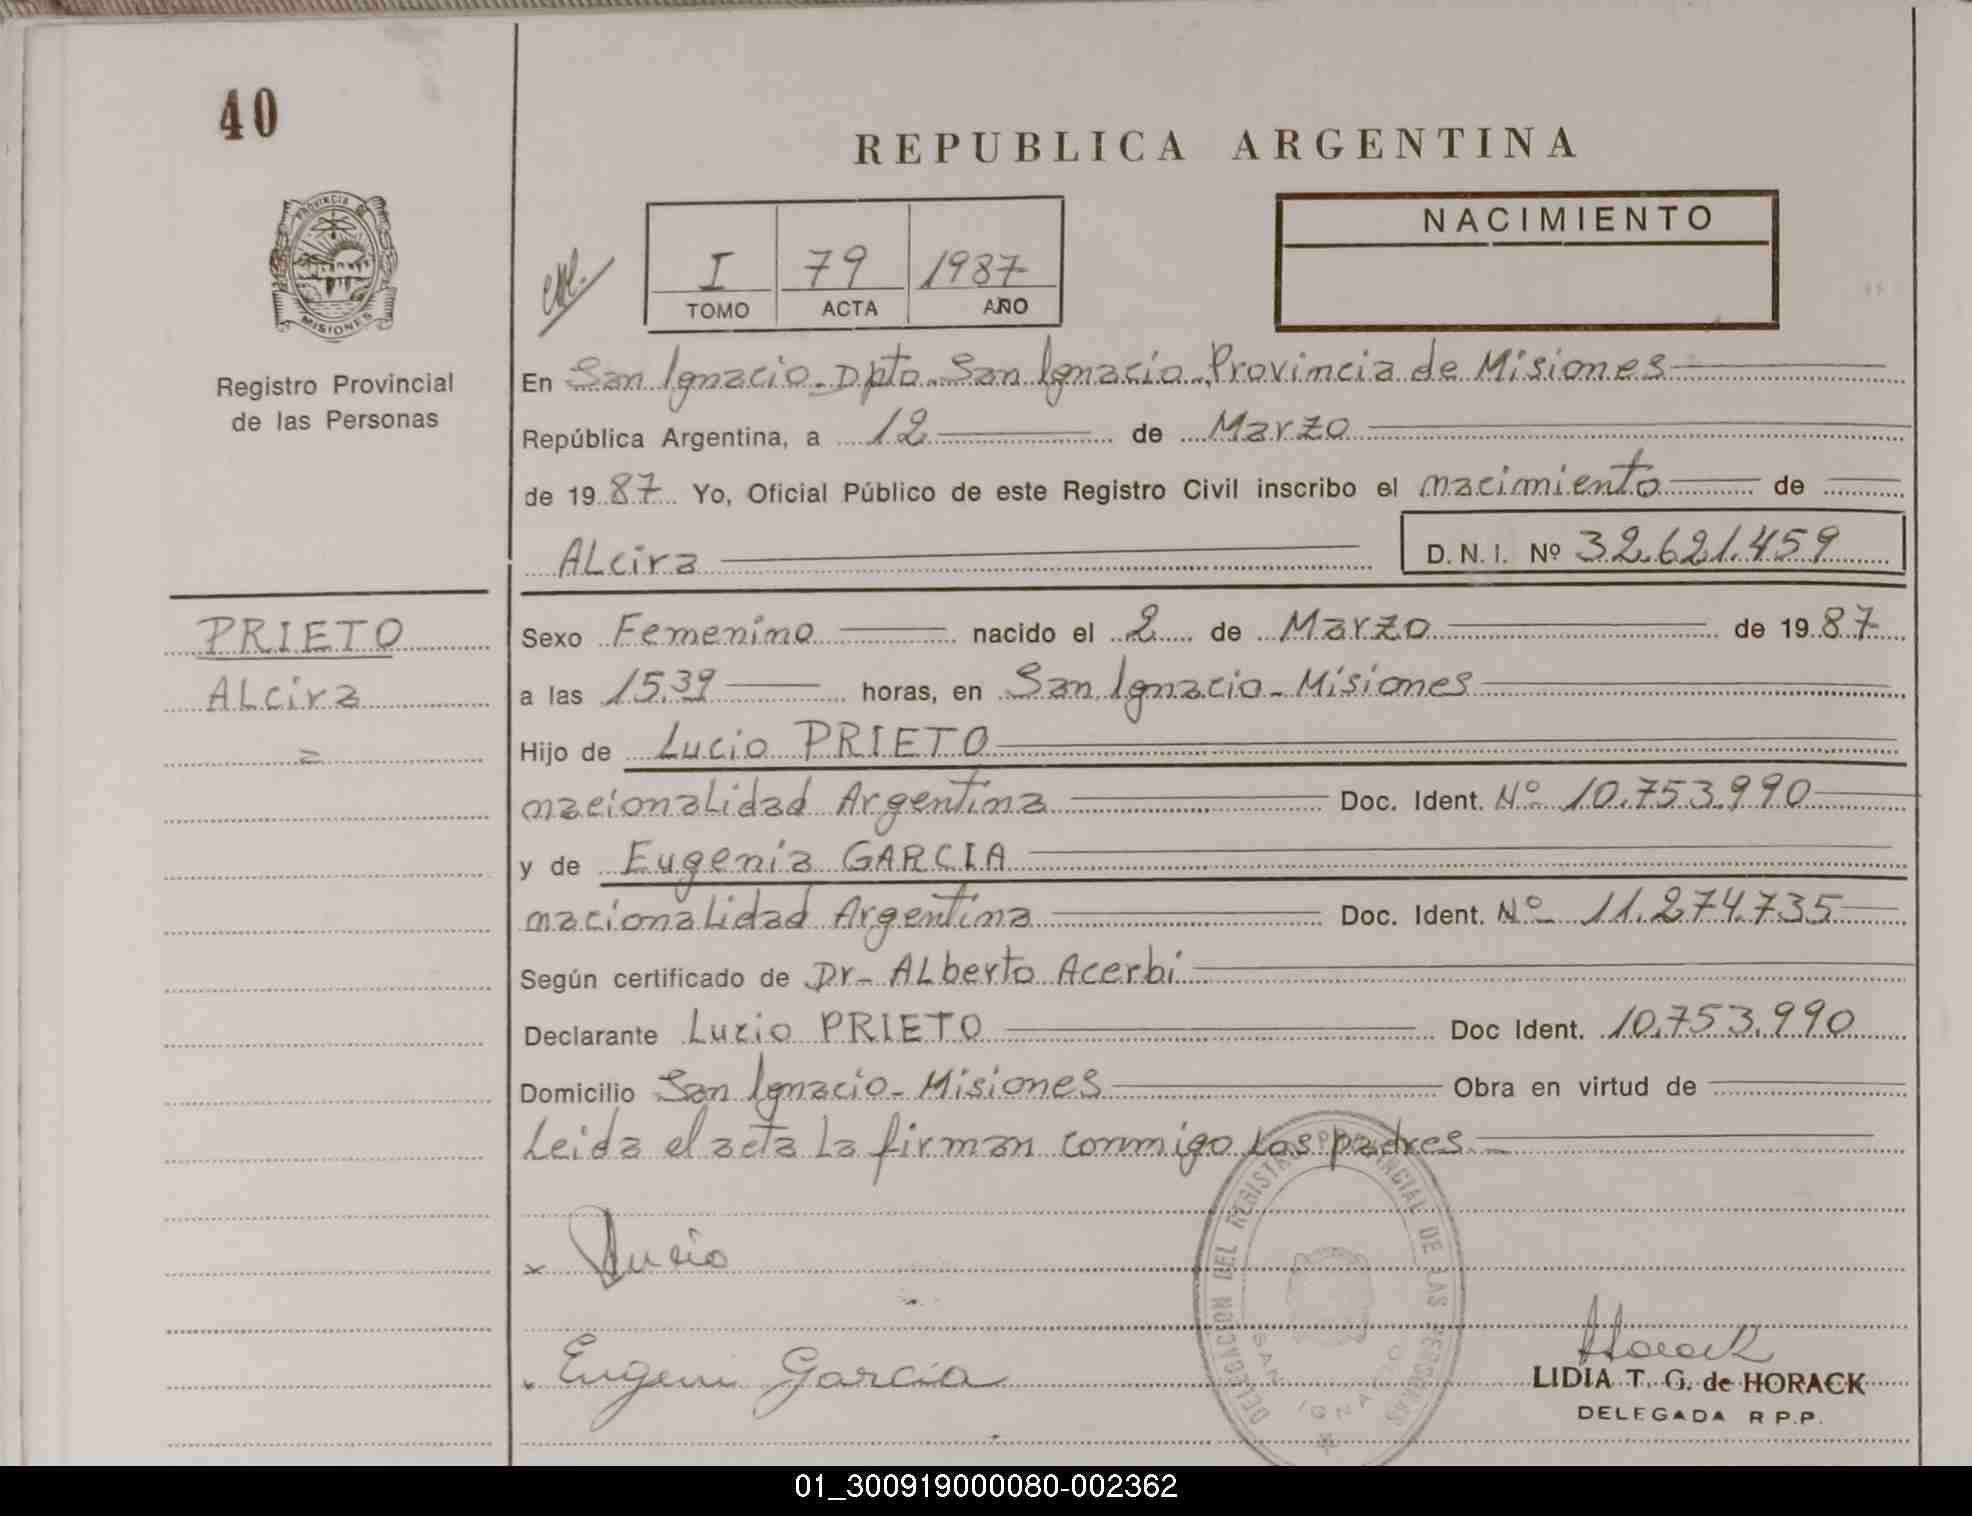 40
REPUBLICA ARGENTINA
PROVINCIA DE
MISIONES
Registro Provincial
de las Personas
NACIMIENTO
I 79 1987
TOMO ACTA AÑO
En San Ignacio - Dpto. San Ignacio - Provincia de Misiones
República Argentina, a 12 de Marzo
de 19 87 Yo, Oficial Público de este Registro Civil inscribo el nacimiento de
ALcira D.N.I. Nº 32.621.459
PRIETO
ALcira
=
Sexo Femenino nacido el 2 de Marzo de 19 87
a las 15.39 horas, en San Ignacio - Misiones
Hijo de Lucio PRIETO
nacionaLidad Argentina Doc. Ident. Nº 10.753.990
y de Eugenia GARCIA
nacionaLidad Argentina Doc. Ident. Nº 11.274.735
Según certificado de Dr - ALberto Acerbi
Declarante Lucio PRIETO Doc Ident. 10.753.990
Domicilio San Ignacio - Misiones Obra en virtud de
Leida el acta La firman conmigo Los padres -
DELEGACION DEL REGISTRO PROVINCIAL DE LAS PERSONAS
SAN IGNACIO
x Lucio
Eugeni Garcia
Horack
LIDIA T. G. de HORACK
DELEGADA R P.P.
01_300919000080-002362